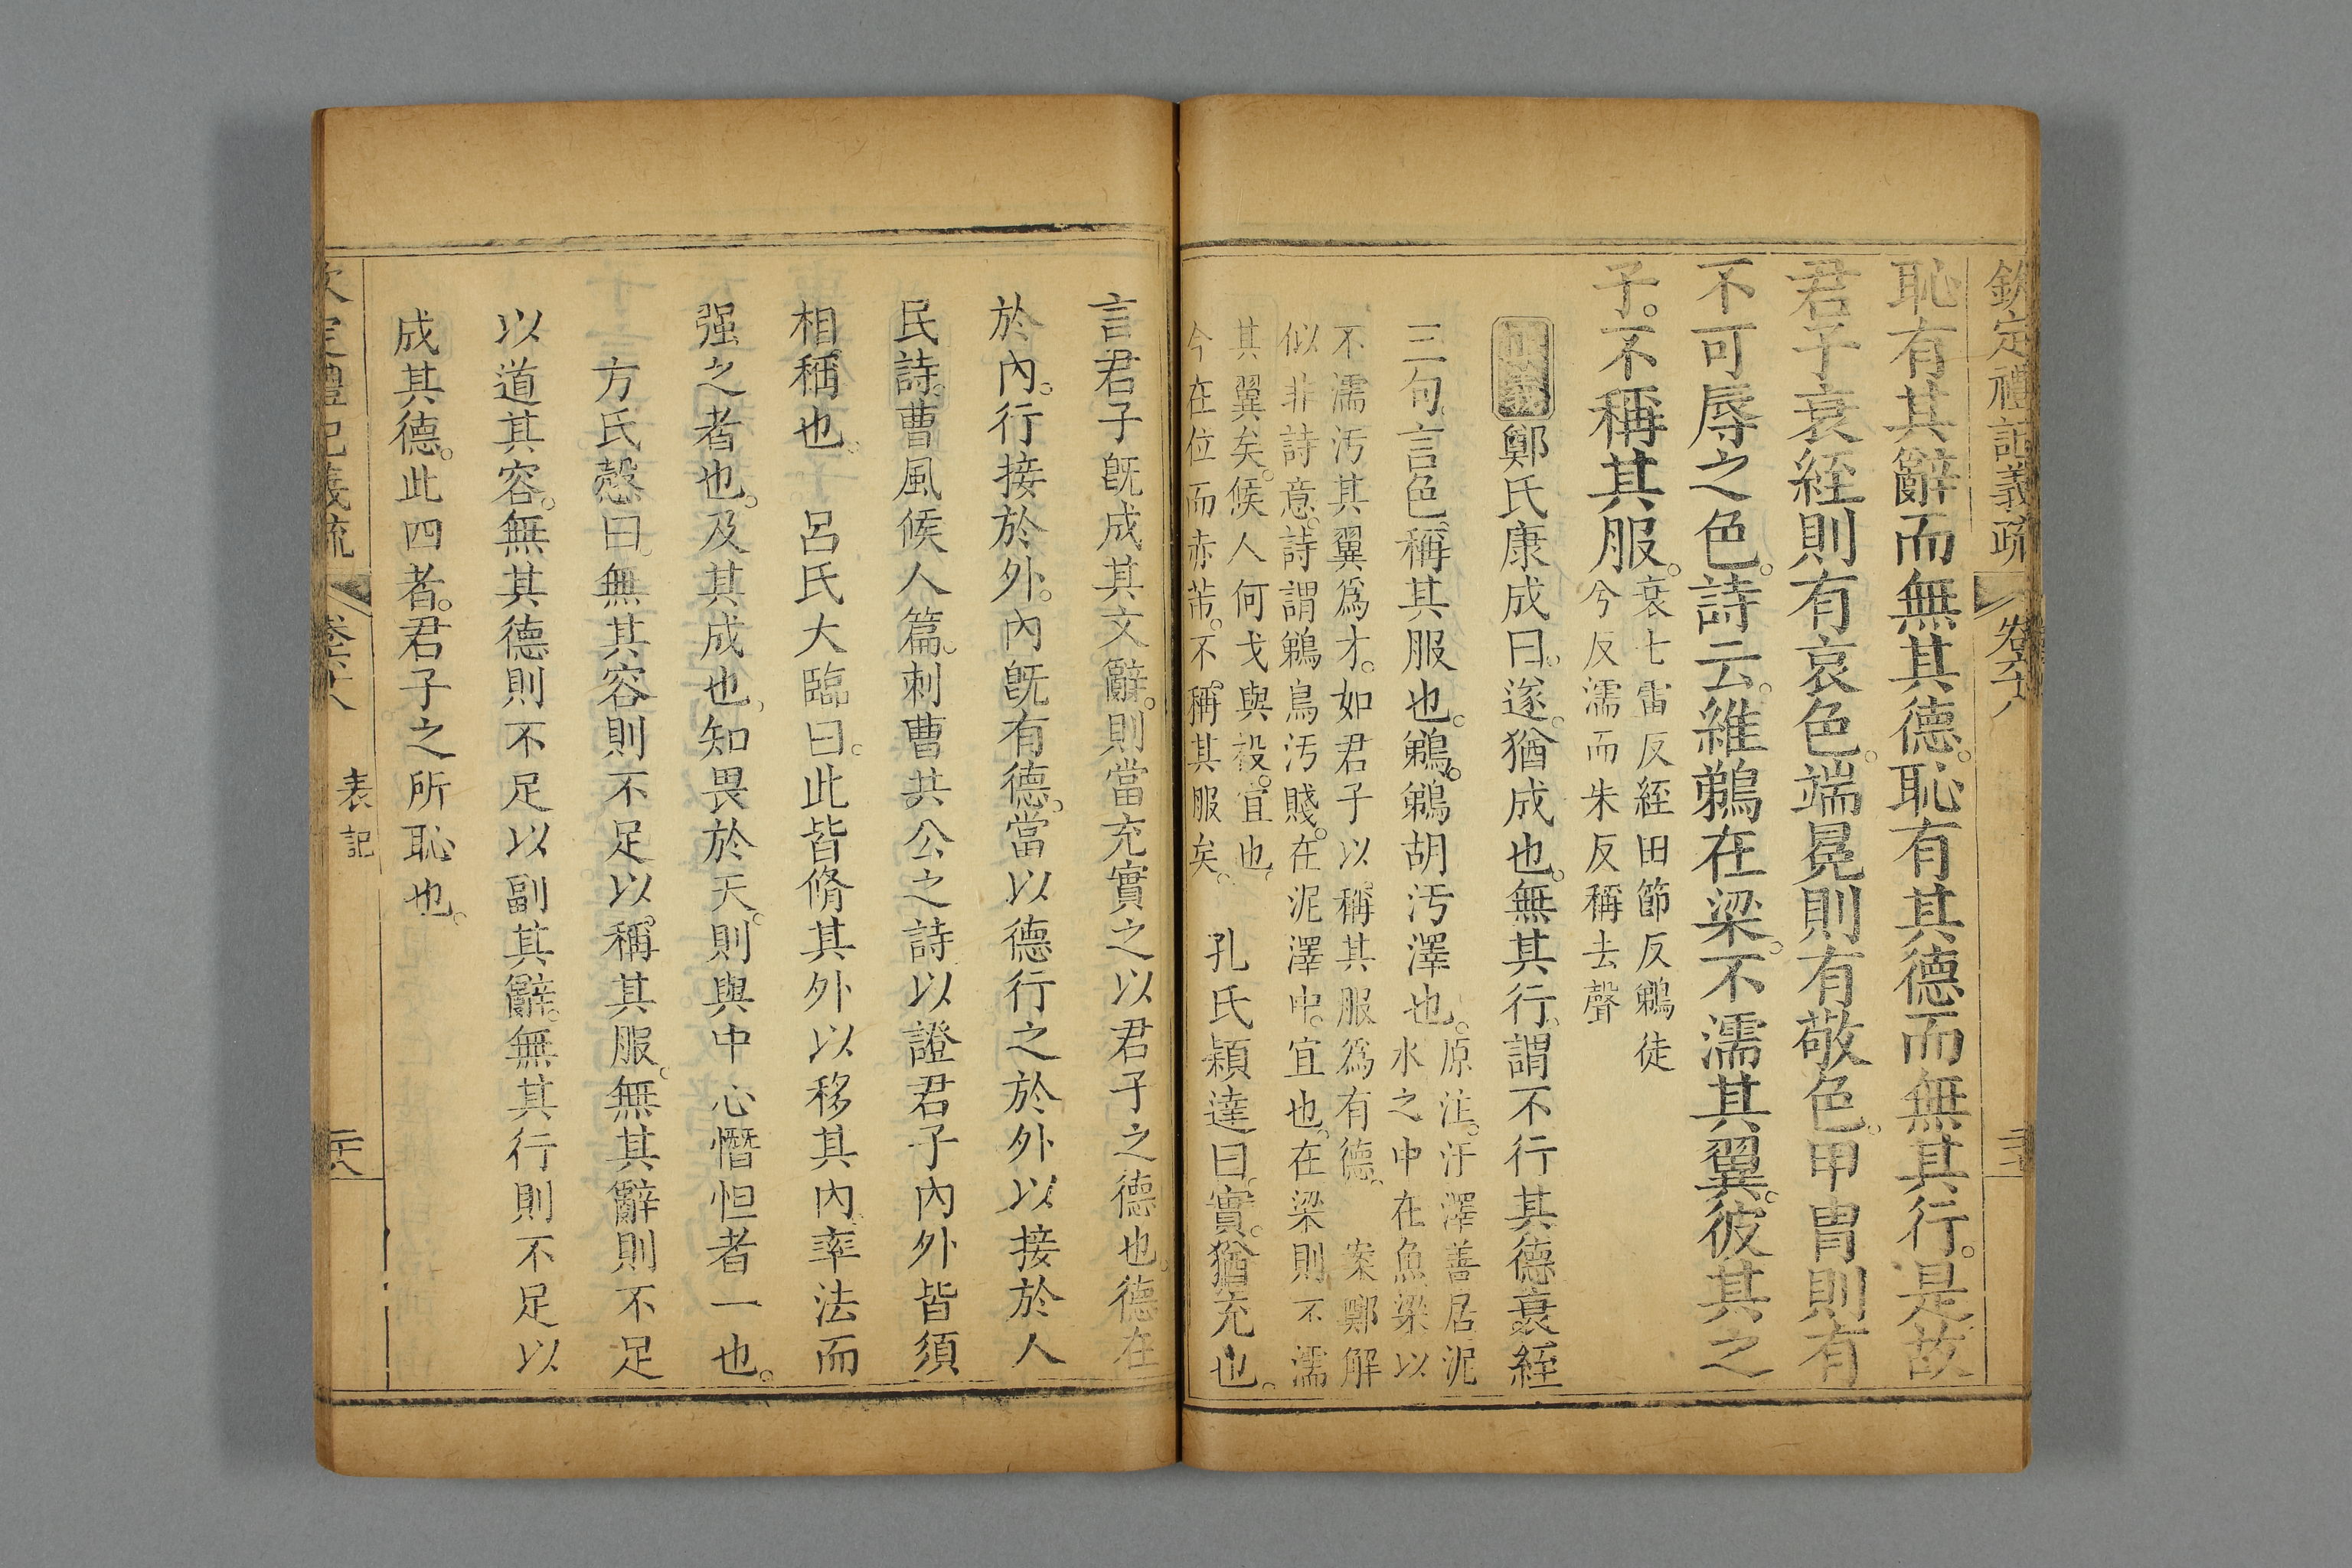 欽定禮記義疏 卷六十八
恥有其辭而無其德。恥有其德而無其行。是故
君子衰絰則有哀色。端冕則有敬色。甲冑則有
不可辱之色。詩云。維鵜在梁。不濡其翼。彼其之
子。不稱其服。
衰七雷反絰田節反鵜徒
兮反濡而朱反稱去聲
鄭氏康成曰。遂。猶成也。無其行。謂不行其德衰絰
三句。言色稱其服也。鵜。鵜胡汚澤也。
原注。汙澤善居泥
水之中在魚梁以
不濡汚其翼爲才。如君子以稱其服爲有德。 案鄭解
似非詩意。詩謂鵜鳥汚賤。在泥澤中。宜也。在梁則不濡
其翼矣。候人何戈與祋。宜也。
今在位而赤芾。不稱其服矣。
孔氏穎達曰。實。猶充也。
言君子既成其文辭。則當充實之以君子之德也。德在
於內。行接於外。內既有德。當以德行之於外以接於人
民詩。曹風候人篇。刺曹共公之詩以證君子內外皆須
相稱也。 呂氏大臨曰。此皆脩其外以移其內。率法而
强之者也。及其成也。知畏於天。則與中心憯怛者一也。
方氏慤曰。無其容則不足以稱其服。無其辭則不足
以道其容。無其德則不足以副其辭。無其行則不足以
成其德。此四者。君子之所恥也。
表記